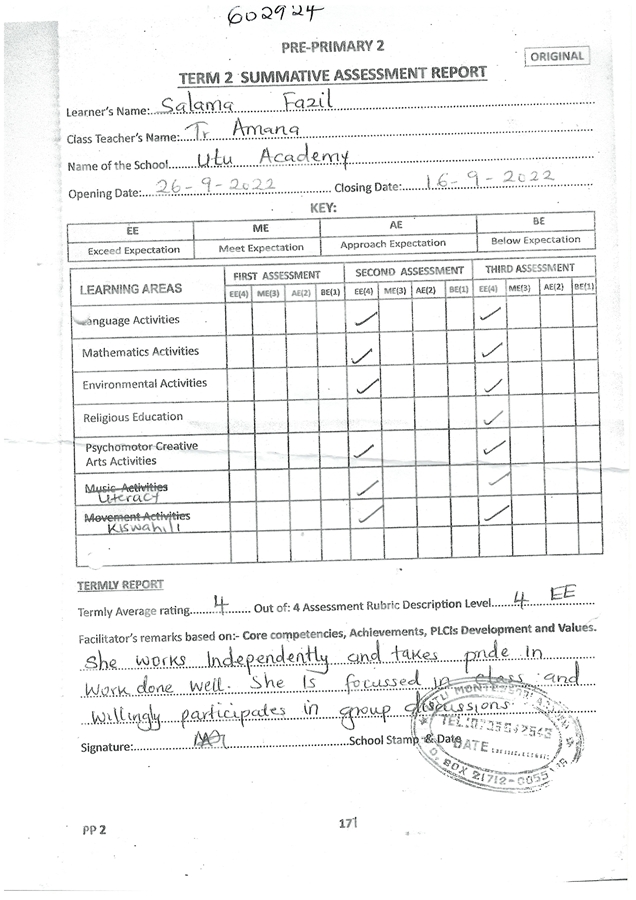 602924
PRE-PRIMARY 2
ORIGINAL
TERM 2 SUMMATIVE ASSESSMENT REPORT
Learner's Name: Salama Fazil
Class Teacher's Name: Tr Amana
Name of the School Utu Academy
Opening Date: 26-9-2022 Closing Date: 16-9-2022
KEY:
EE ME AE BE
Exceed Expectation Meet Expectation Approach Expectation Below Expectation
LEARNING AREAS FIRST ASSESSMENT SECOND ASSESSMENT THIRD ASSESSMENT
EE(4) ME(3) AE(2) BE(1) EE(4) ME(3) AE(2) BE(1) EE(4) ME(3) AE(2) BE(1)
Language Activities ✓ ✓
Mathematics Activities ✓ ✓
Environmental Activities ✓ ✓
Religious Education ✓
Psychomotor Creative
Arts Activities ✓ ✓
Music Activities
Literacy ✓ ✓
Movement Activities
Kiswahili ✓ ✓
TERMLY REPORT
Termly Average rating 4 Out of: 4 Assessment Rubric Description Level 4 EE
Facilitator's remarks based on:- Core competencies, Achievements, PLCIs Development and Values.
She works Independently and takes pride in
Work done well. She Is focussed in class and
willingly participates in group discussions.
Signature: School Stamp & Date
DATE
BOX 21712-0055
PP 2
171